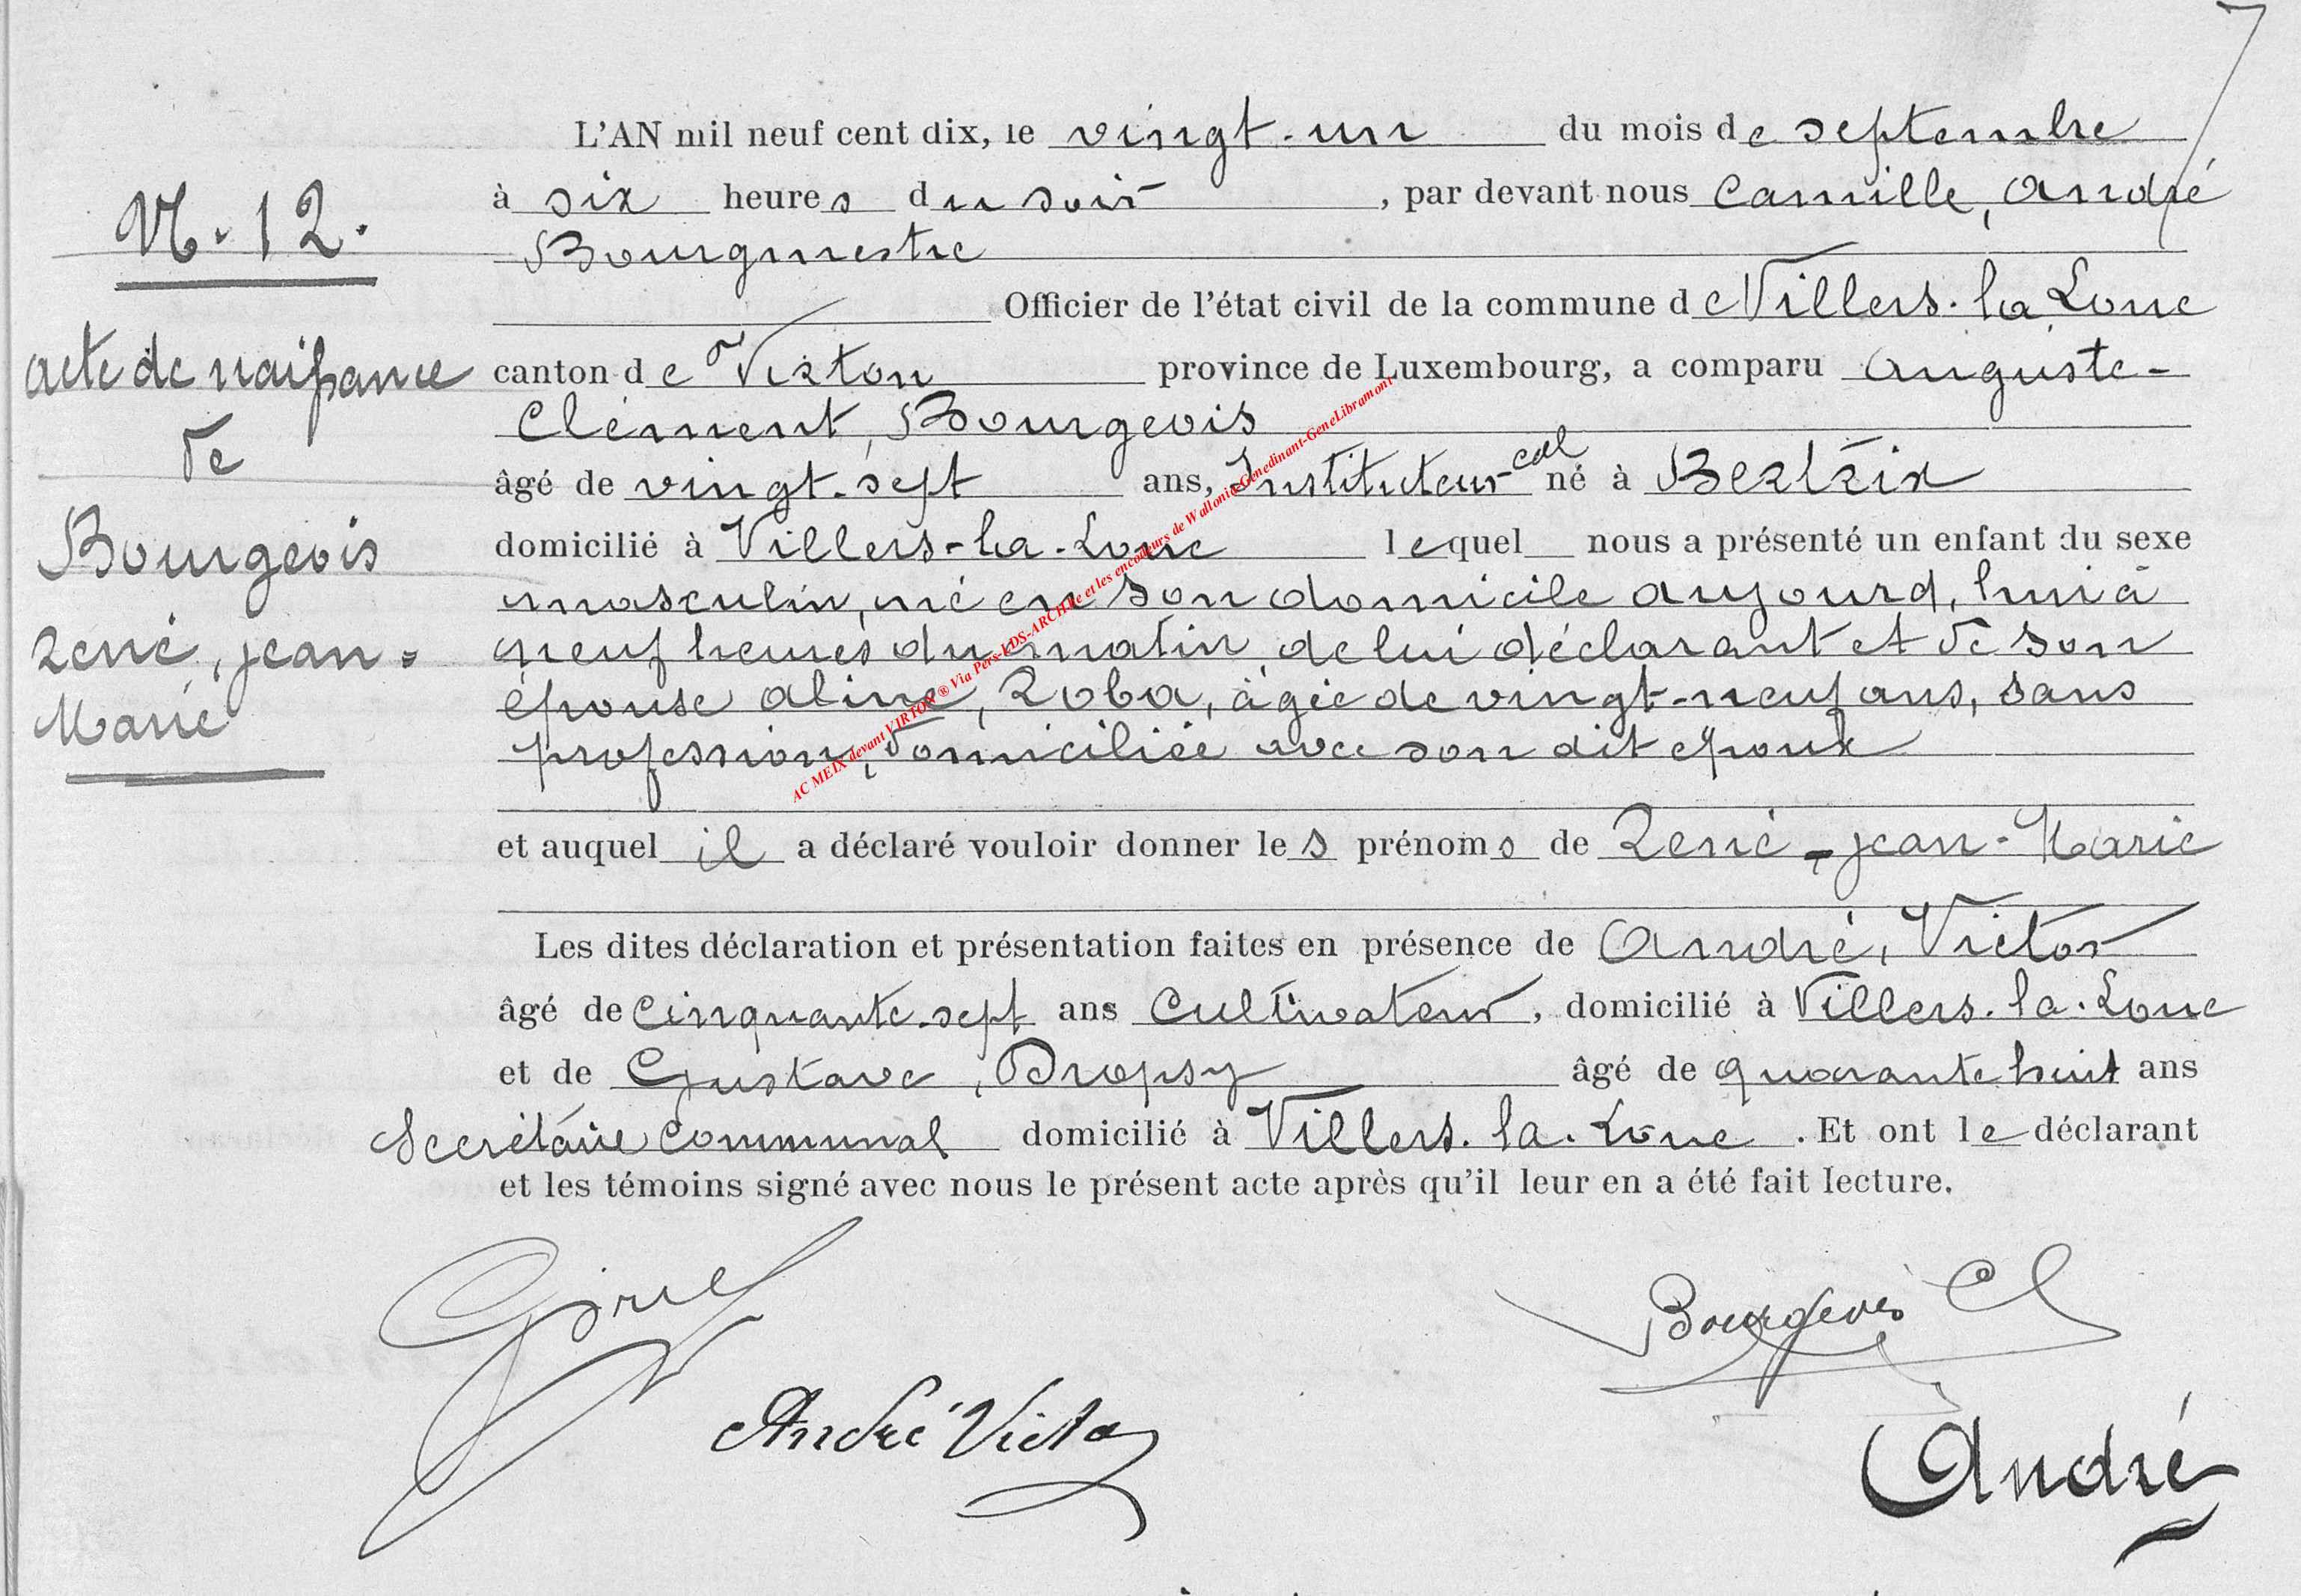 L'AN mil neuf cent dix, le vingt-un du mois de septembre
à six heures du soir, par devant nous Camille, André
Bourgmestre
Officier de l'état civil de la commune de Villers-la-Loue
canton de Virton province de Luxembourg, a comparu Auguste-
Clément, Bourgeois
âgé de vingt-sept ans, Instituteur cal né à Bertrix
domicilié à Villers-la-Loue lequel nous a présenté un enfant du sexe
masculin, né en son domicile aujourd'hui à
neuf heures du matin, de lui déclarant et de son
épouse Aline, Roba, âgée de vingt-neuf ans, sans
profession, domiciliée avec son dit époux
et auquel il a déclaré vouloir donner les prénoms de René-Jean-Marie
Les dites déclaration et présentation faites en présence de André, Victor
âgé de cinquante-sept ans Cultivateur, domicilié à Villers-la-Loue
et de Gustave, Dropsy âgé de quarante huit ans
Secrétaire communal domicilié à Villers-la-Loue. Et ont le déclarant
et les témoins signé avec nous le présent acte après qu'il leur en a été fait lecture.
N. 12.
acte de naissance
de
Bourgeois
René, Jean=
Marie
Bourgeois Cl
André Victor
André
AC MEIX devant VIRTON ® Via Pers-LDS-ARCH.be et les encodeurs de Wallonie-Genedinant-GeneLibramont